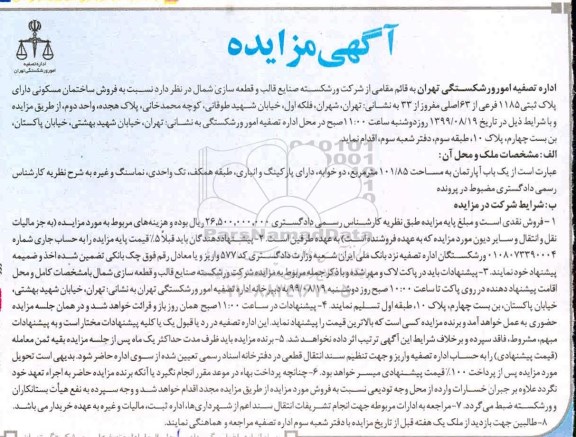 آگهی مزایده
اداره تصفیه
امور ورشکستگی تهران
اداره تصفیه امور ورشکستگی تهران به قائم مقامی از شرکت ورشکسته صنایع قالب و قطعه سازی شمال در نظر دارد نسبت به فروش ساختمان مسکونی دارای
پلاک ثبتی ۱۱۸۵ فرعی از ۶۳ اصلی مفروز از ۳۳ به نشانی: تهران، شهران، فلکه اول، خیابان شهید طوقانی، کوچه محمدخانی، پلاک هجده، واحد دوم، از طریق مزایده
و با شرایط ذیل در تاریخ ۱۳۹۹/۰۸/۱۹ روز دوشنبه ساعت ۱۱:۰۰ صبح در محل اداره تصفیه امور ورشکستگی به نشانی: تهران، خیابان شهید بهشتی، خیابان پاکستان،
بن بست چهارم، پلاک ۱۰، طبقه سوم، دفتر شعبه سوم، اقدام نماید.
الف: مشخصات ملک و محل آن:
عبارت است از یک باب آپارتمان به مساحت ۱۰۱/۸۵ مترمربع، دو خوابه، دارای پارکینگ و انباری، طبقه همکف، تک واحدی، نماسنگ و غیره به شرح نظریه کارشناس
رسمی دادگستری مضبوط در پرونده
ب: شرایط شرکت در مزایده
۱- فروش نقدی است و مبلغ پایه مزایده طبق نظریه کارشناس رسمی دادگستری ۲۶,۵۰۰,۰۰۰,۰۰۰ ریال بوده و هزینه‌های مربوط به مورد مزایده (به جز مالیات
نقل و انتقال و سایر دیون مورد مزایده که به عهده فروشنده است) به عهده طرفین است. ۲- پیشنهاددهندگان باید قبلاً ۵٪ قیمت پایه مزایده را به حساب جاری شماره
۰۱۰۸۰۷۳۳۹۰۰۰۴ ورشکستگان اداره تصفیه نزد بانک ملی ایران شعبه وزارت دادگستری کد ۵۷۷ واریز و یا معادل رقم فوق چک بانکی تضمین شده اخذ و ضمیمه
پیشنهاد خود نمایند. ۳- پیشنهادات باید در پاکت لاک و مهر شده و با ذکر جمله مربوط به مزایده شرکت ورشکسته صنایع قالب و قطعه سازی شمال با مشخصات کامل و محل
اقامت پیشنهاد دهنده در روی پاکت تا ساعت ۱۰:۰۰ صبح روز دوشنبه ۹۹/۰۸/۱۹ به دبیرخانه اداره تصفیه امور ورشکستگی تهران به نشانی: تهران، خیابان شهید بهشتی،
خیابان پاکستان، بن بست چهارم، پلاک ۱۰، طبقه اول تسلیم نمایند. ۴- پیشنهادات در ساعت ۱۱:۰۰ صبح همان روز باز و قرائت خواهد شد و در همان جلسه مزایده
حضوری به عمل خواهد آمد و برنده مزایده کسی است که بالاترین قیمت را پیشنهاد نماید. این اداره تصفیه در رد یا قبول یک یا کلیه پیشنهادات مختار است و به پیشنهادات
مبهم، مشروط، فاقد سپرده و برخلاف شرایط این آگهی ترتیب اثر داده نخواهد شد. ۵- برنده مزایده باید ظرف مدت حداکثر یک ماه پس از جلسه مزایده بقیه ثمن معامله
(قیمت پیشنهادی) را به حساب اداره تصفیه واریز و جهت تنظیم سند انتقال قطعی در دفترخانه اسناد رسمی تعیین شده از سوی اداره حاضر شود. بدیهی است تحویل
مورد مزایده پس از پرداخت ۱۰۰٪ قیمت پیشنهادی میسر خواهد بود. ۶- چنانچه پرداخت بهاء در موعد مقرر انجام نگیرد یا آنکه برنده مزایده حاضر به اجراء تعهد خود
نگردد علاوه بر جبران خسارات وارده از محل وجه تودیعی نسبت به فروش مورد مزایده از طریق مزایده مجدد اقدام خواهد شد و وجه سپرده به نفع هیأت بستانکاران
و ورشکسته ضبط می گردد. ۷- مراجعه به ادارات مربوطه جهت انجام تشریفات انتقال سند اعم از شهرداری‌ها، اداره ثبت، مالیات و غیره به عهده خریدار می باشد.
۸- طالبین جهت بازدید از ملک یک هفته قبل از تاریخ مزایده با دفتر شعبه سوم اداره تصفیه مراجعه و هماهنگی نمایند.